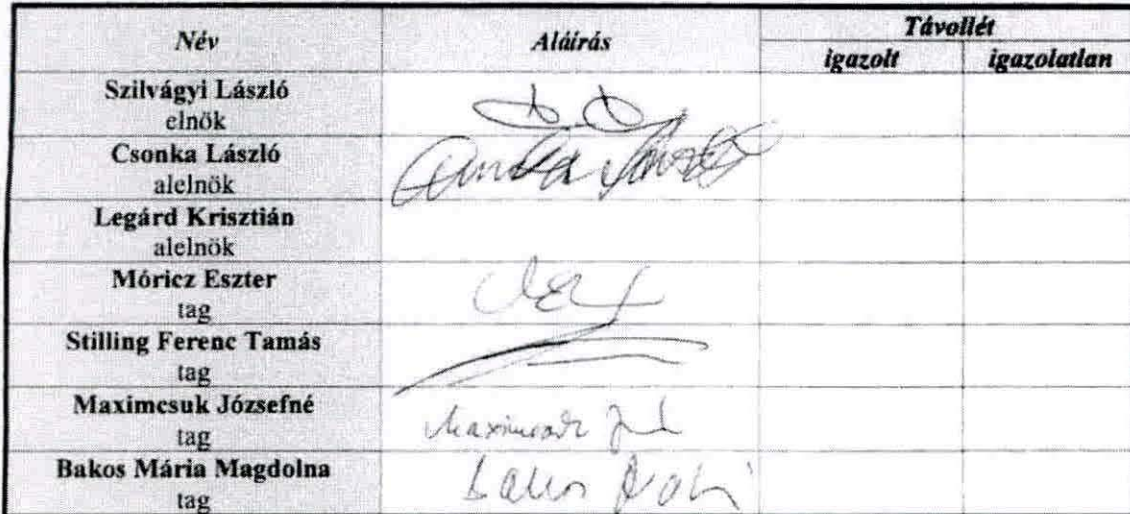 Név Aláírás Távollét
igazolt igazolatlan
Szilvágyi László
elnök
Csonka László
alelnök
Legárd Krisztián
alelnök
Móricz Eszter
tag
Stilling Ferenc Tamás
tag
Maximcsuk Józsefné
tag
Bakos Mária Magdolna
tag